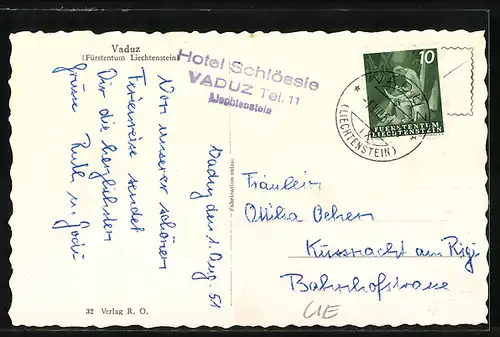 Vaduz
(Fürstentum Liechtenstein)
Hotel Schlössle
VADUZ Tel. 11
Liechtenstein
Vaduz den 1. Aug. 51
Von unserer schönen
Ferienreise sendet
Dir die herzlichsten
Grüsse Ruth u. Godi
32 Verlag R. O.
Fabrication suisse
10
FUERSTENTUM
LIECHTENSTEIN
VADUZ
(LIECHTENSTEIN)
Fräulein
Ottilia
Küssnacht am Rigi
Bahnhofstrasse
LIE